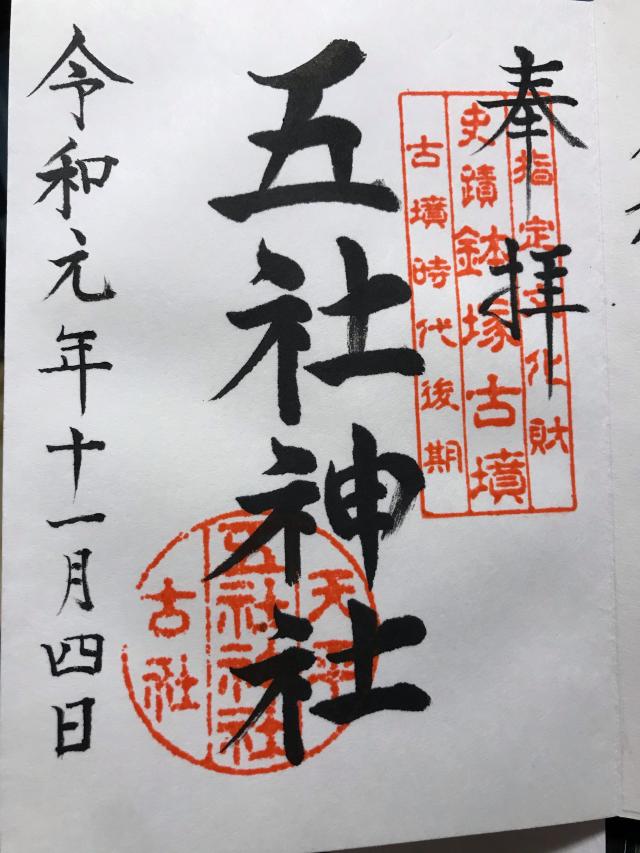 奉拝
指定文化財
史蹟鉢塚古墳
古墳時代後期
五社神社
天平
五社神社
古社
令和元年十一月四日